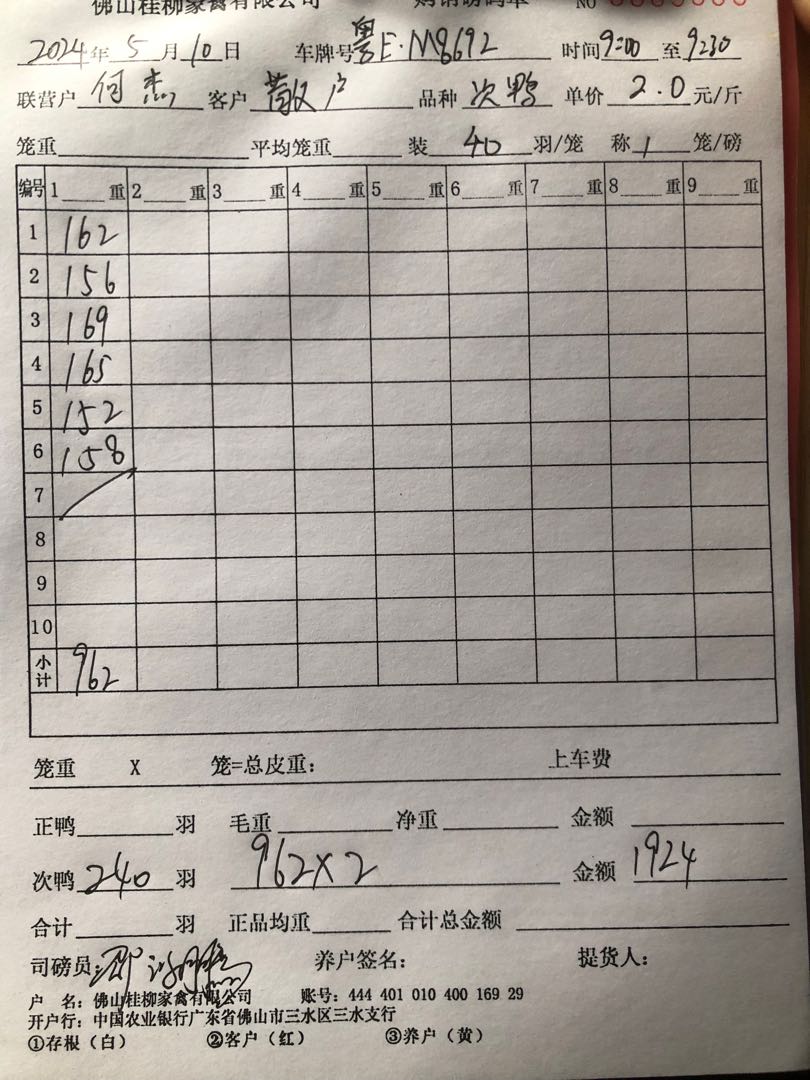 佛山桂柳家禽有限公司 购销磅码单 NO
2024年5月10日 车牌号粤E·M8692 时间9:00至9:30
联营户 何杰 客户 散户 品种 次鸭 单价 2.0 元/斤
笼重 平均笼重 装 40 羽/笼 称 1 笼/磅
编号 1 重 2 重 3 重 4 重 5 重 6 重 7 重 8 重 9 重
1 162
2 156
3 169
4 165
5 152
6 158
7
8
9
10
小计 962
笼重 X 笼=总皮重： 上车费
正鸭 羽 毛重 净重 金额
次鸭 240 羽 962×2 金额 1924
合计 羽 正品均重 合计总金额
司磅员： 养户签名： 提货人：
户 名：佛山桂柳家禽有限公司 账号：444 401 010 400 169 29
开户行：中国农业银行广东省佛山市三水区三水支行
①存根（白） ②客户（红） ③养户（黄）